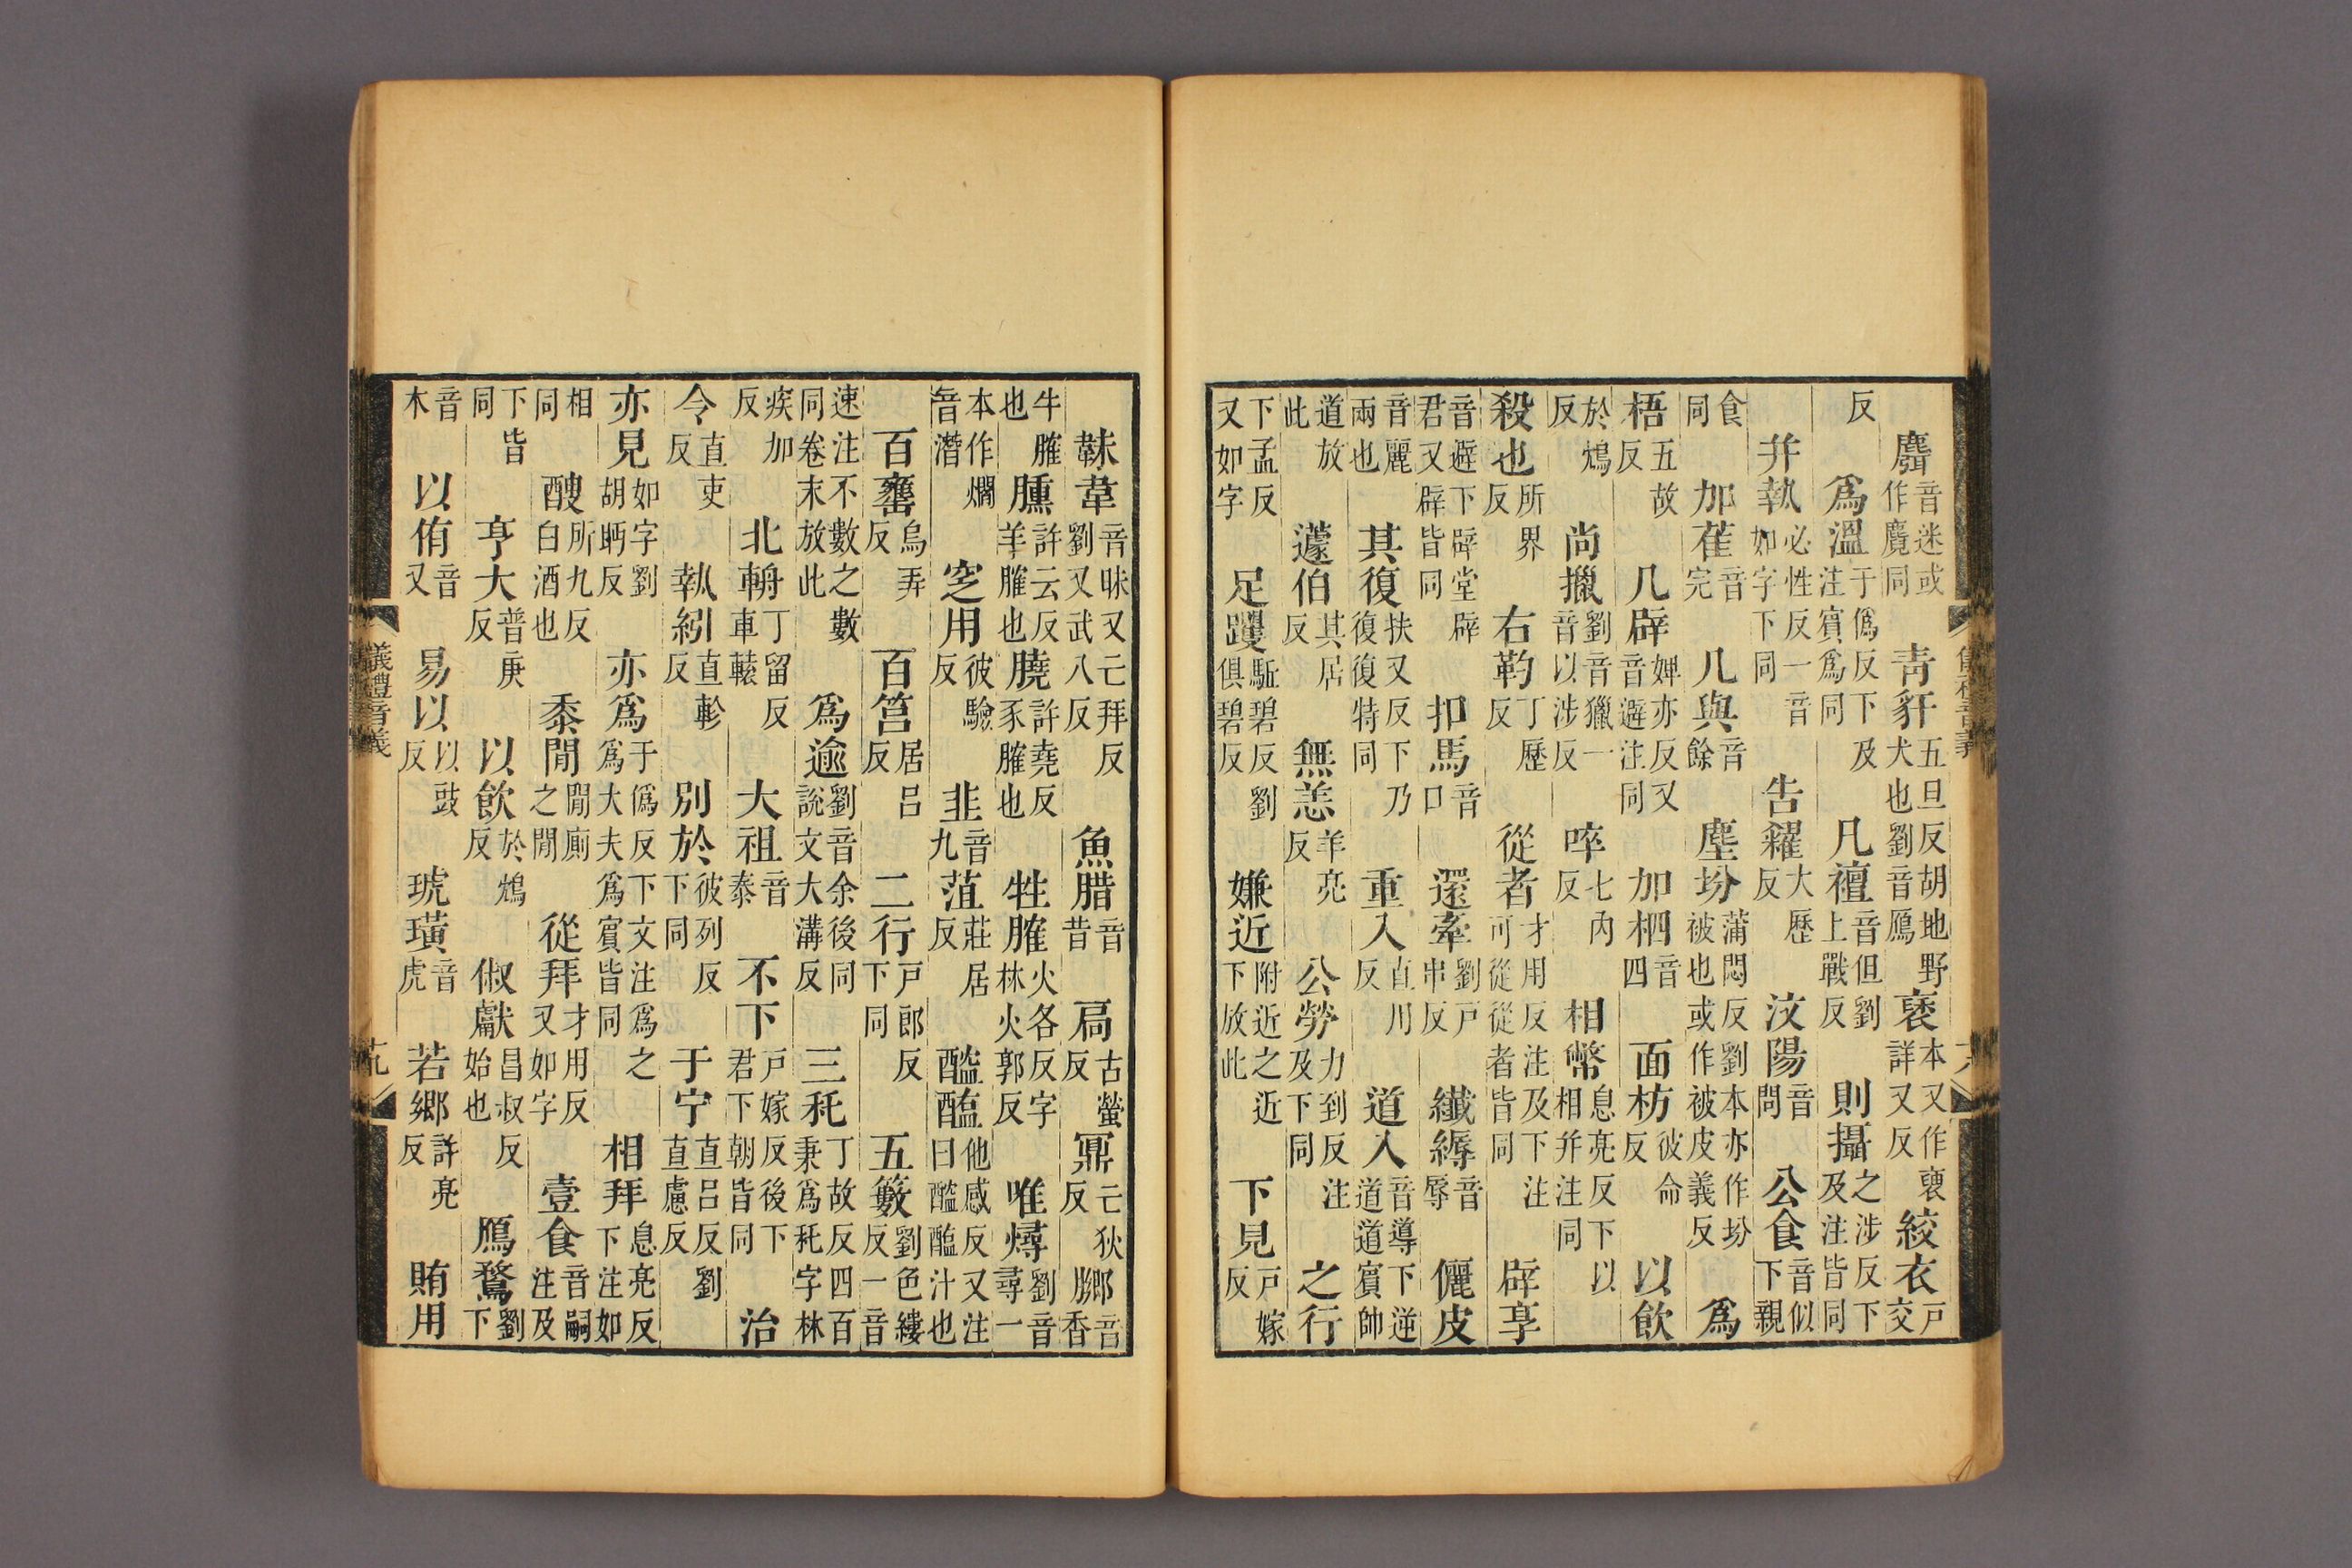 麛音迷或作麑同青豻五旦反胡地野犬也劉音鴈褎本又作褏詳又反絞衣戶交
反爲溫于僞反下及注賓爲同凡襢音但劉上戰反則攝之涉反下及注皆同
并執必性反一音如字下同告糴大歷反汶陽音問公食音似下親
食同加萑音完几與音餘塵坋蒲悶反劉本亦作坋被也或作被皮義反爲
梧五故反几辟婢亦反又音避注同加柶音四面枋彼命反以飲
於鴆反尚擸劉音獵一音以涉反啐七內反相幣息亮反下以相并注同
殺也所界反右靮丁歷反從者才用反注及下注可從從者皆同辟享
音避下辟堂辟君又辟皆同扣馬音口還牽劉戶串反纖縟音辱儷皮
音麗兩也其復扶又反下乃復復特同重入直川反道入音導下逆道道賓帥
道放此蘧伯其居反無恙羊亮反公勞力到反注及下同之行
下孟反又如字足躩駈碧反劉俱碧反嫌近附近之近下放此下見戶嫁反
儀禮音義 十八
韎韋音昧又亡拜反劉又武八反魚腊音昔扃古螢反鼏亡狄反膷音香
牛臛也臐許云反羊臛也膮許堯反豕臛也牲臛火各反字林火郭反唯燖劉音尋一
本作爓音潛窆用彼驗反韭音九菹莊居反醓醢他感反又注曰醓醢汁也
百罋烏弄反百筥居呂反二行戶郎反下同五籔劉色縷反一音
速注不數之數同卷末放此爲逾劉音余後同說文大溝反三秅丁故反四百秉爲秅字林
疾加反北輈丁留反車轅大祖音泰不下戶嫁反後下君下朝皆同治
令直吏反執紖直軫反別於彼列反下同于宁直呂反劉直慮反
亦見如字劉胡眄反亦爲于僞反下文注爲之爲大夫爲賓皆同相拜息亮反下注如
相同醙所九反白酒也黍閒閒廁之閒從拜才用反又如字壹食音嗣注及
下皆同亨大普庚反以飲於鴆反俶獻昌叔反始也鴈鶩劉下
音木以侑音又易以以豉反琥璜音虎若鄉許亮反賄用
儀禮音義 十九